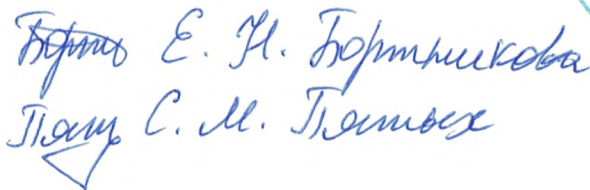 Борт Е. Н. Бортникова
Пят С. М. Пятых